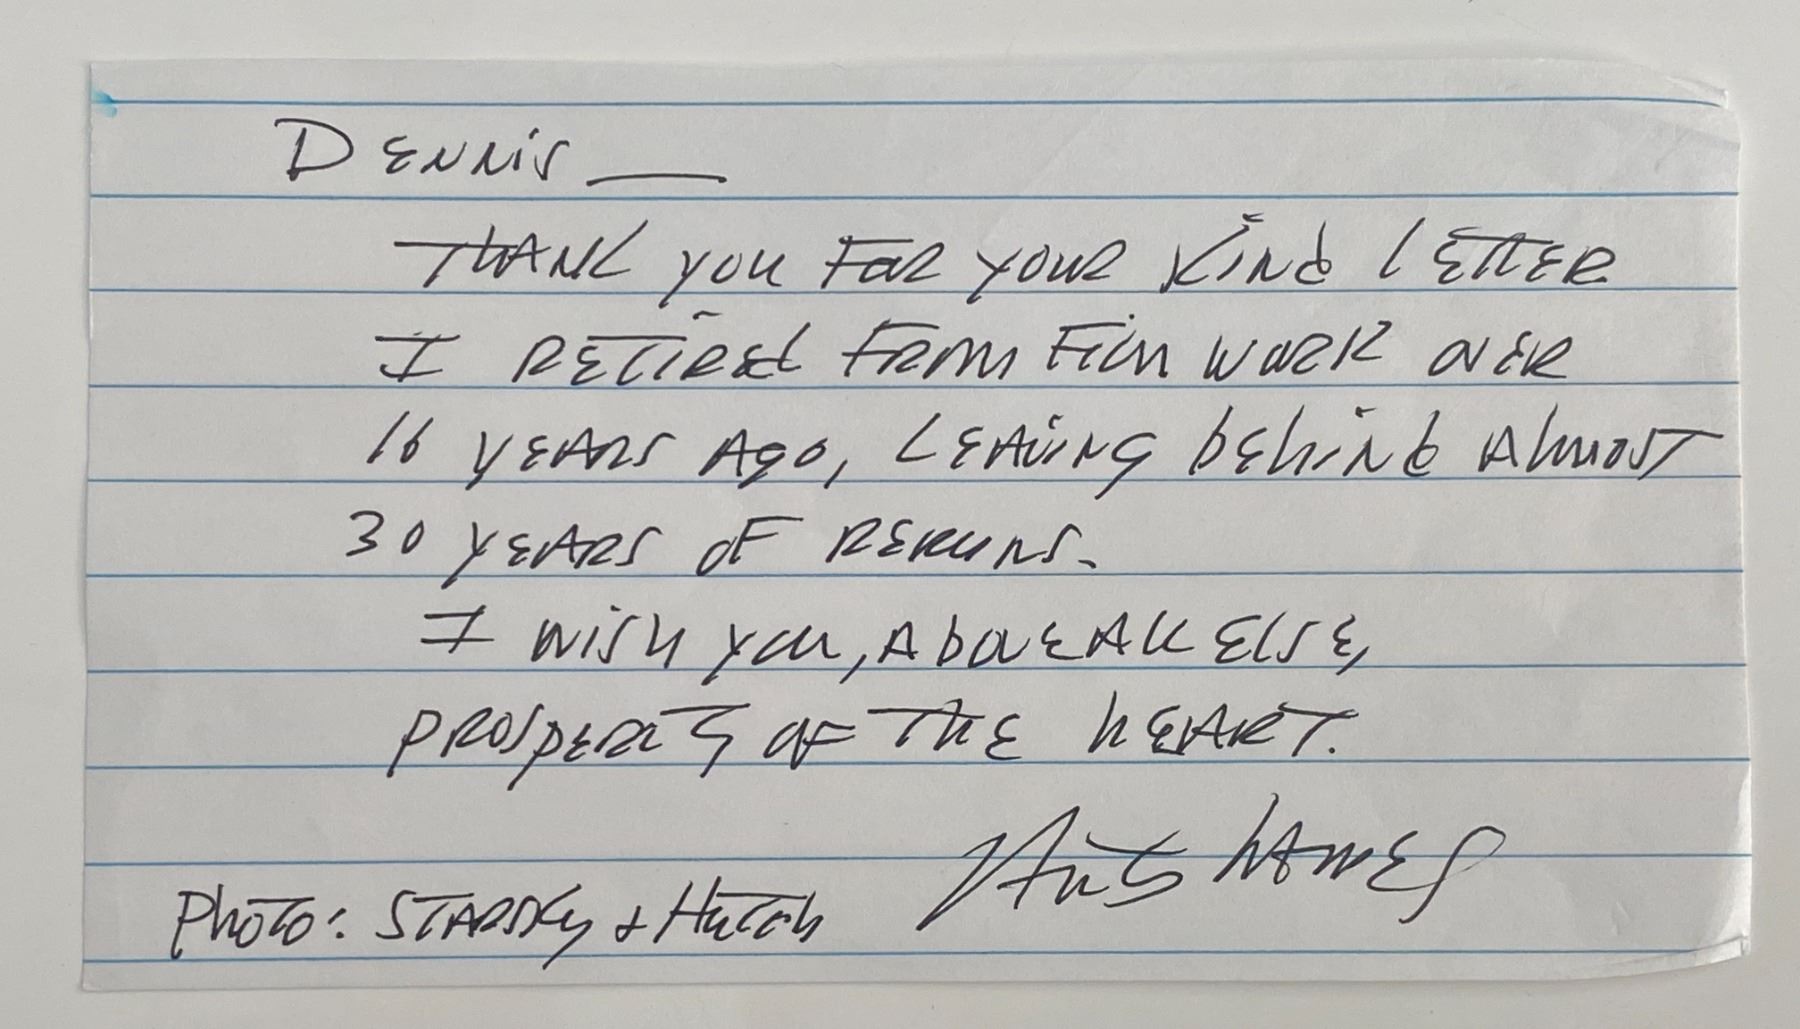 Dennis —
Thank you for your kind letter
I retired from film work over
16 years ago, leaving behind almost
30 years of reruns.
I wish you, above all else,
prosperity of the heart.
James
Photo: Starsky & Hutch